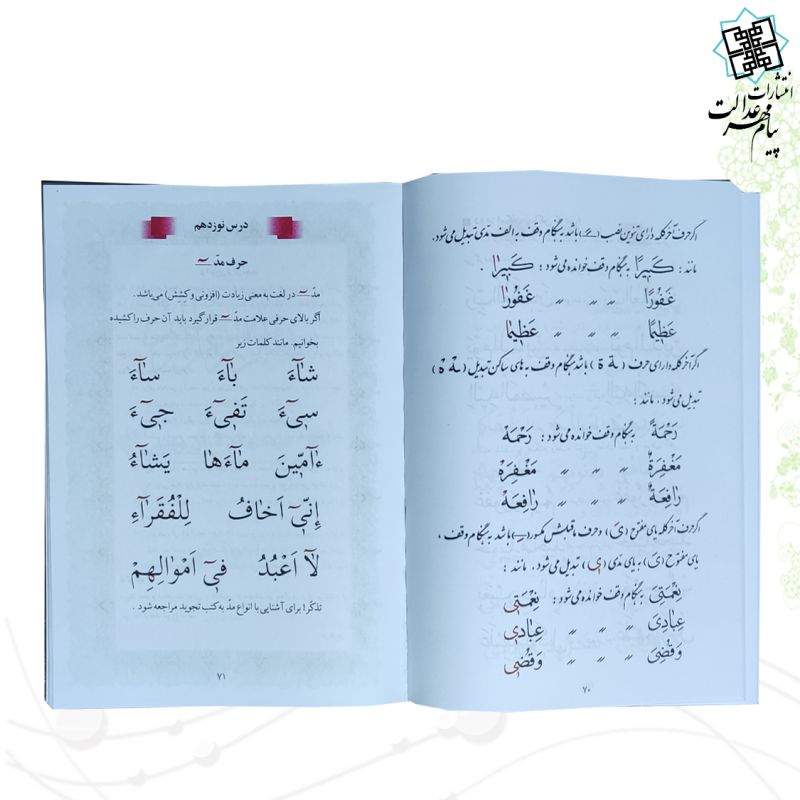 انتشارات
پیام مهر عدالت
اگر حرف آخر کلمه دارای تنوین نصب (ـًـ) باشد به هنگام وقف به الف مدی تبدیل می‌شود.
مانند: کَبیرًا به هنگام وقف خوانده می‌شود: کَبیرٰا .
غَفُورًا 〃 〃 〃 غَفُورٰا
عَظیمًا 〃 〃 〃 عَظیمٰا
اگر آخر کلمه دارای حرف (ـة ة) باشد هنگام وقف به های ساکن تبدیل (ـهْ هْ)
تبدیل می‌شود. مانند:
رَحْمَةٌ به هنگام وقف خوانده می‌شود: رَحْمَهْ
مَغْفِرَةٌ 〃 〃 〃 مَغْفِرَهْ
رٰافِعَةٌ 〃 〃 〃 رٰافِعَهْ
اگر حرف آخر کلمه یای مفتوح (یَ) و حرف ماقبلش مکسور (ـِـ) باشد به هنگام وقف،
یای مفتوح (یَ) به یای مدی (ی) تبدیل می‌شود. مانند:
نِعْمَتِیَ به هنگام وقف خوانده می‌شود: نِعْمَتی
عِبٰادِیَ 〃 〃 〃 عِبٰادی
وَ قُضِیَ 〃 〃 〃 وَ قُضی
۷۰
درس نوزدهم
حرف مدّ ـٓـ
مدّ ـٓـ در لغت به معنی زیادت (افزونی و کِشِش) می‌باشد.
اگر بالای حرفی علامت مدّ ـٓـ قرار گیرد باید آن حرف را کشیده
بخوانیم. مانند کلمات زیر
شآءَ بآءَ سآءَ
سیٓءَ تَفیٓءَ جیٓءَ
ءآمّینَ مآءَهٰا یَشآءُ
اِنّیٓ اَخٰافُ لِلْفُقَرآءِ
لآ اَعْبُدُ فیٓ اَمْوٰالِهِمْ
تذکّر! برای آشنایی با انواع مدّ به کتب تجوید مراجعه شود.
۷۱